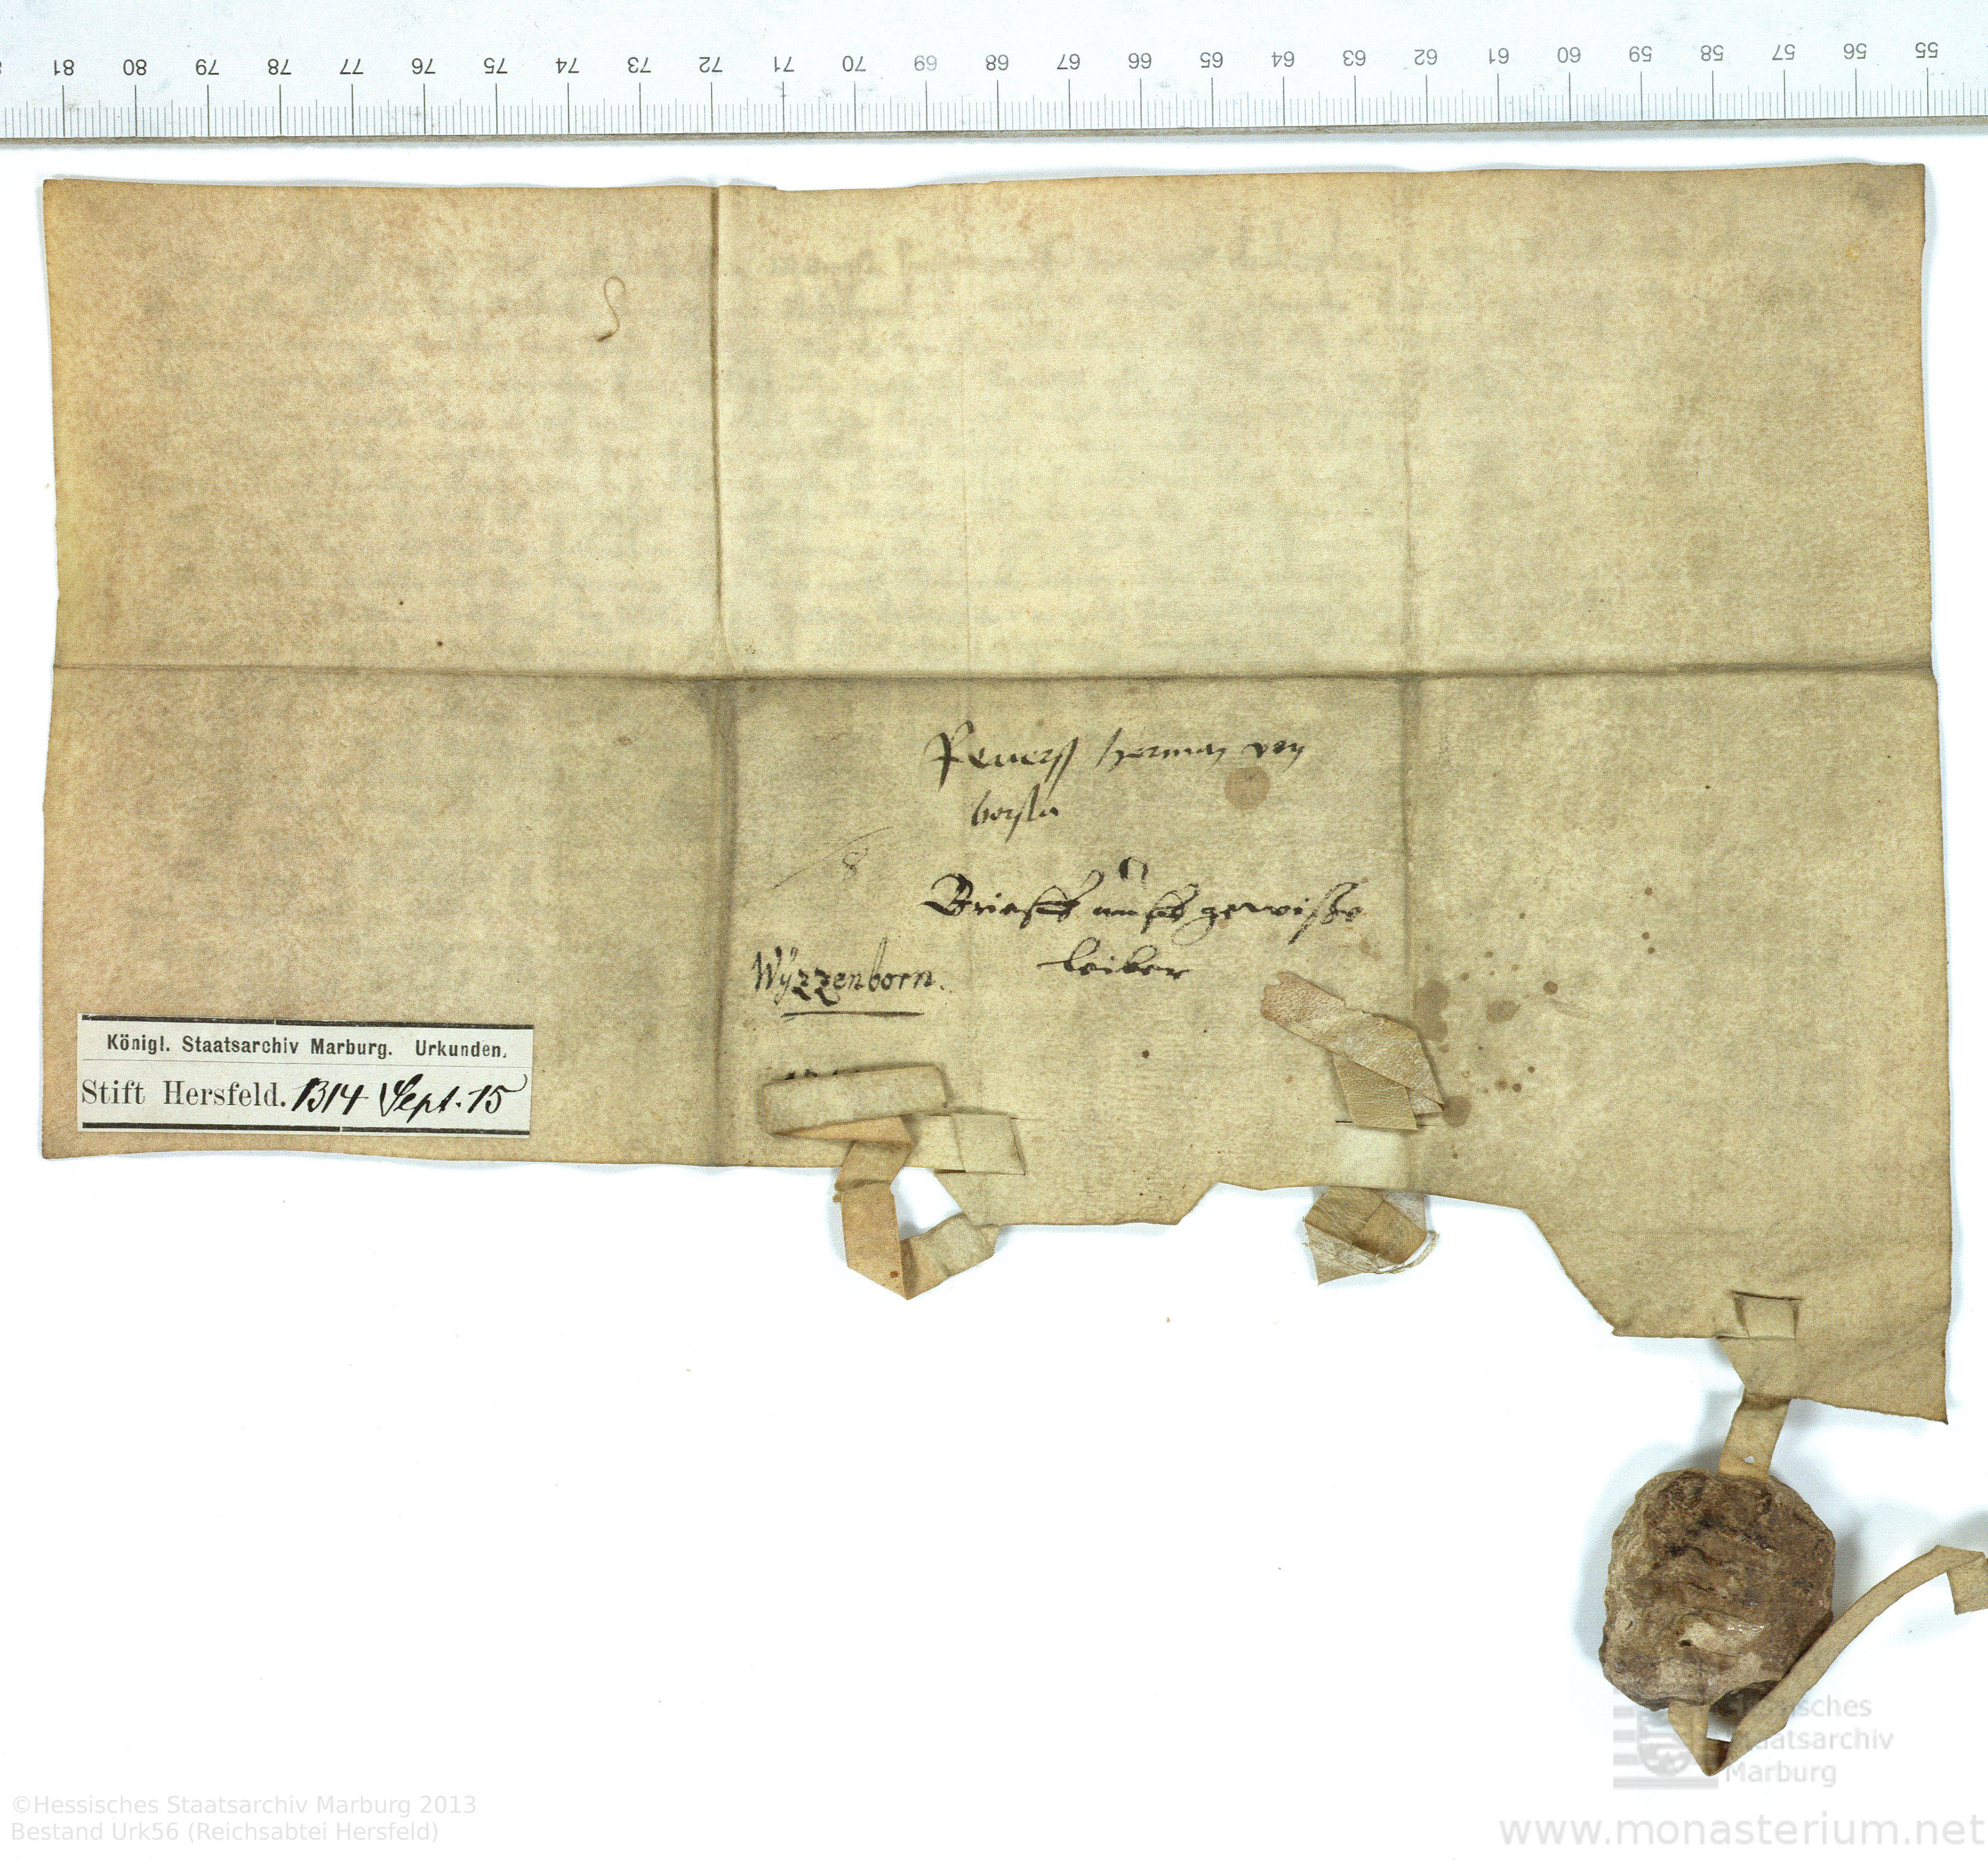 81 80 79 78 77 76 75 74 73 72 71 70 69 68 67 66 65 64 63 62 61 60 59 58 57 56 55
Reuerß Herman von
borsla
8
Brieff vff gewiße
leiber
Wÿzzenborn.
Königl. Staatsarchiv Marburg. Urkunden.
Stift Hersfeld. 1314 Sept. 15
Staatsarchiv
Marburg
©Hessisches Staatsarchiv Marburg 2013
Bestand Urk56 (Reichsabtei Hersfeld)
www.monasterium.net